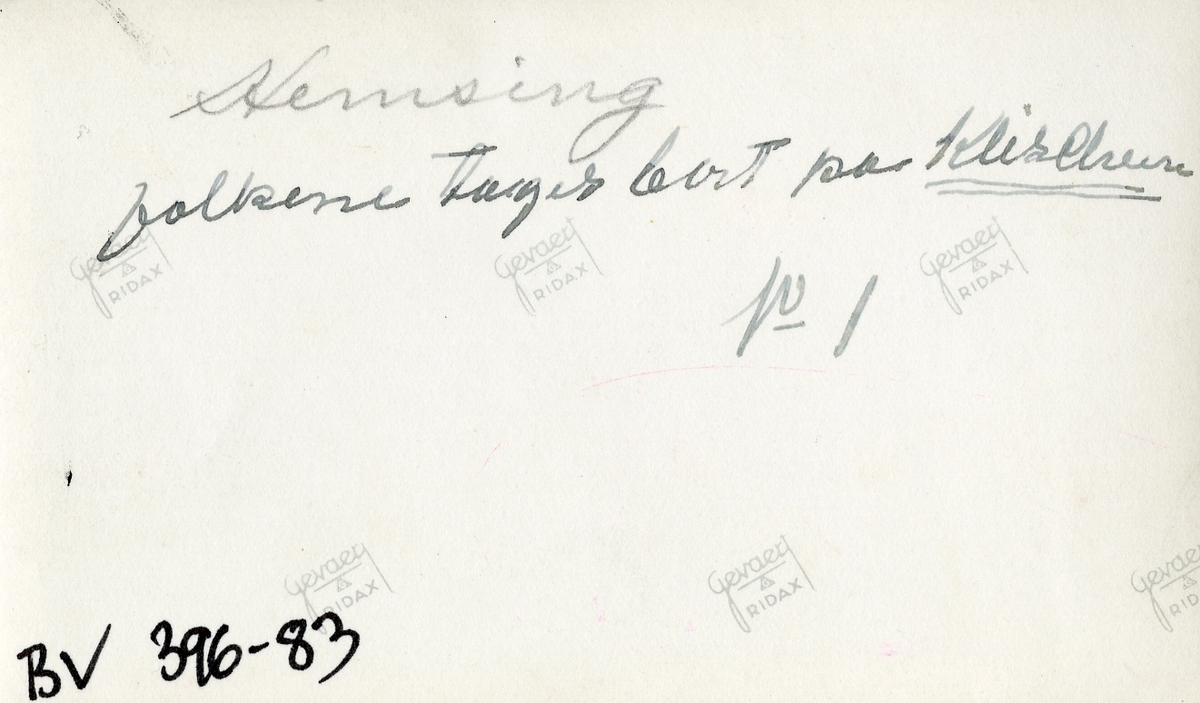 Hemsing
folkene tages bort på Klischeen
No 1
Gevaert RIDAX
Gevaert RIDAX
Gevaert RIDAX
Gevaert RIDAX
Gevaert RIDAX
Gevaert RID
BV 396-83